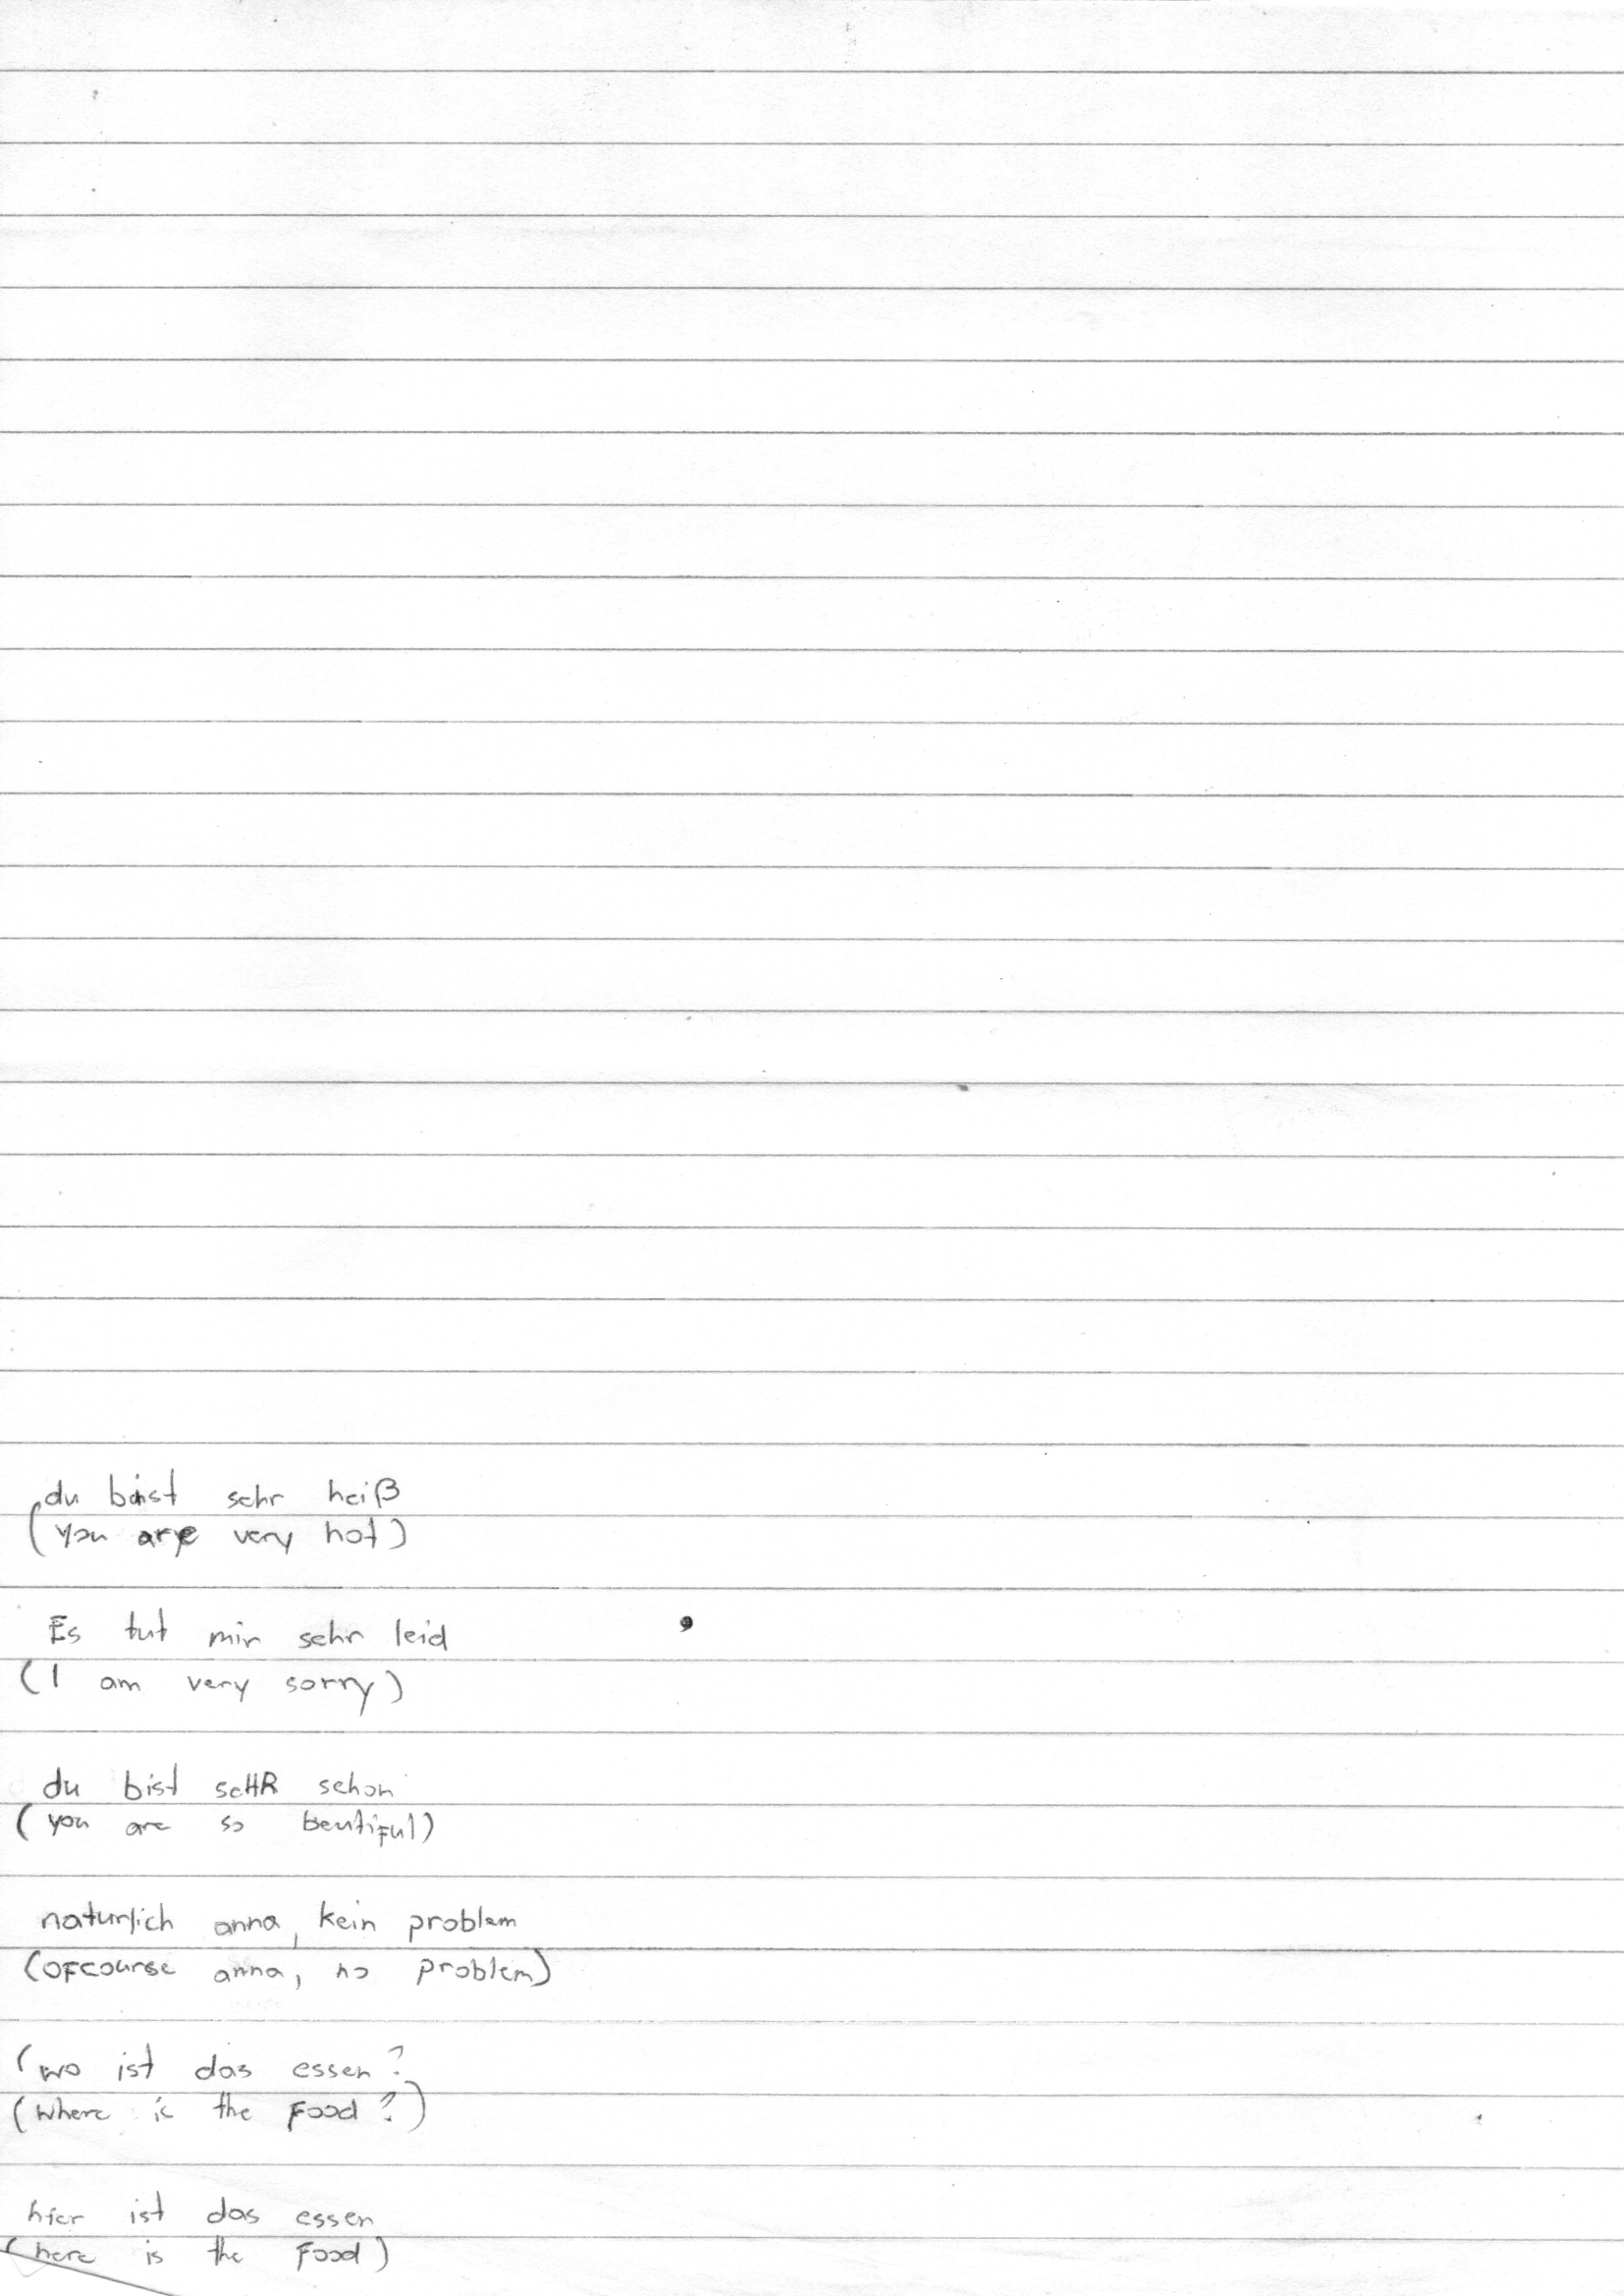 du bist sehr heiß
(you are very hot)
Es tut mir sehr leid
(I am very sorry)
du bist seHR schon
(you are so beutiful)
naturlich anna, kein problem
(ofcourse anna, no problem)
(wo ist das essen?
(where is the food?)
hier ist das essen
(here is the food)